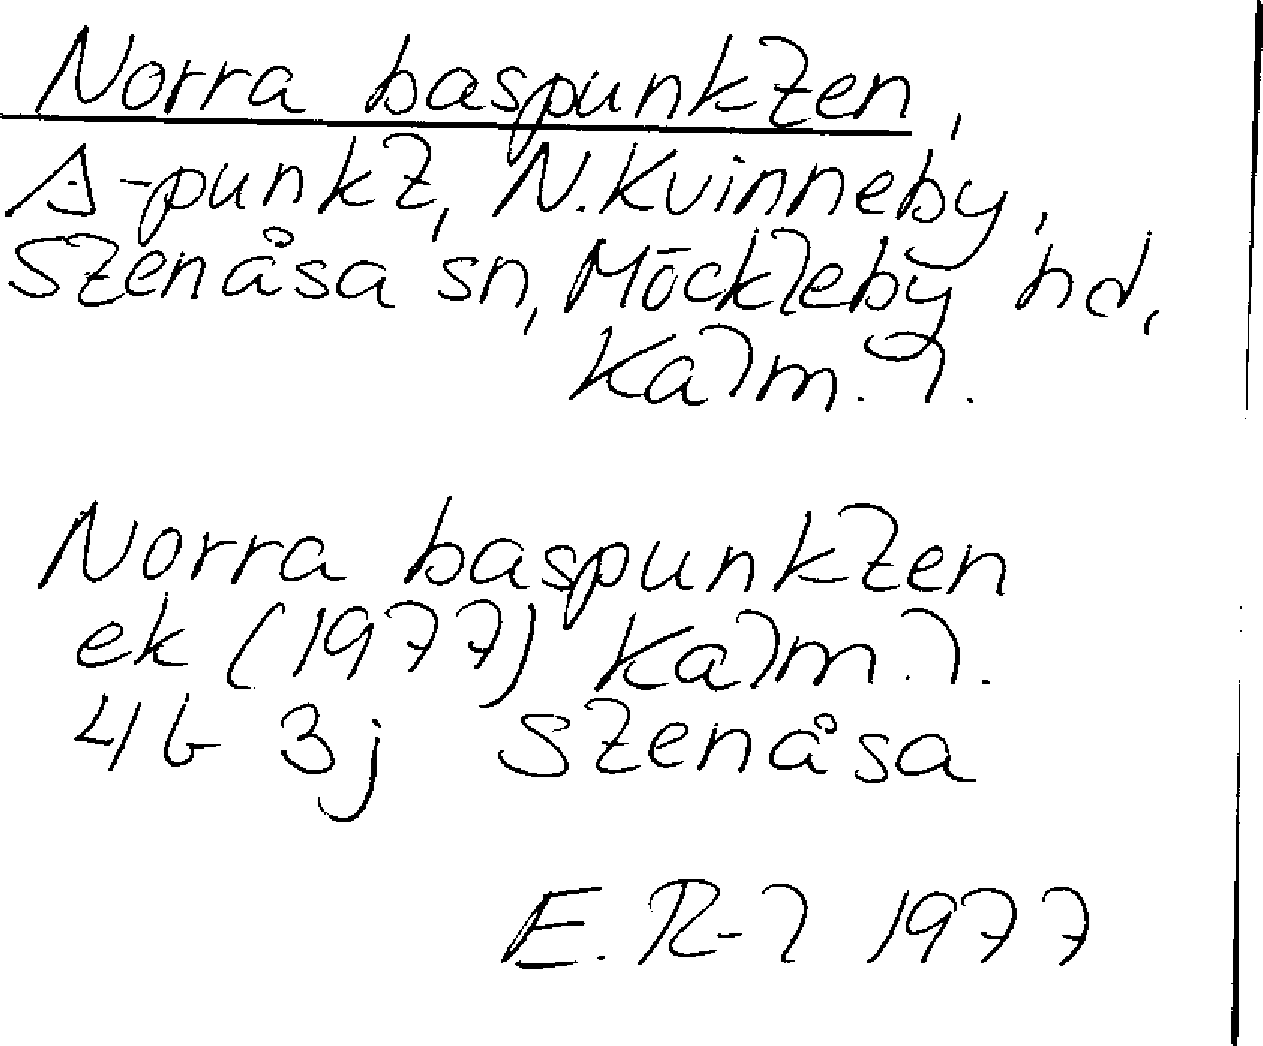 Norra baspunkten,
A-punkt, N. Kvinneby,
Stenåsa sn, Möckleby hd,
Kalm. l.
Norra baspunkten
ek (1977) Kalm. l.
4b 3j Stenåsa
E. R-l 1977